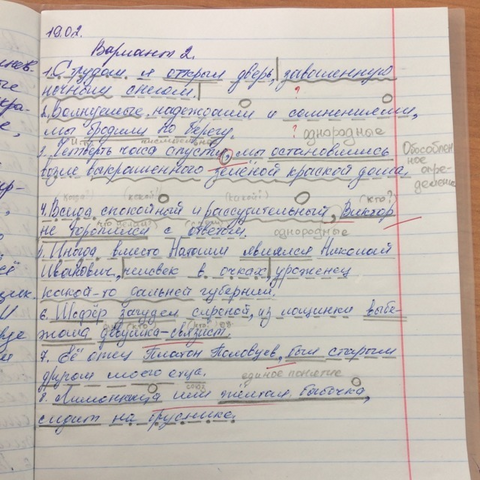 19.02.
Вариант 2.
1. С трудом я открыл дверь, заваленную
ночным снегом.
?
2. Волнуемые надеждами и сомнениями,
мы бродили по берегу. ? однородные
3. Четверть часа спустя, мы остановились
возле выкрашенного зеленой краской дома.
Обособлен
ное опре-
деление
(какой?) (какой?) (кто?)
4. Всегда спокойный и рассудительный, Виктор
не торопился с ответом. однородные
5. Иногда вместо Наташи являлся Николай
Иванович, человек в очках, уроженец
какой-то дальней губернии.
6. Шофёр загудел сиреной, из лощинки выбе-
жала девушка-связист.
7. Её отец Платон Половцев, был старым
другом моего отца. единое понятие
8. Лимонница или жёлтая бабочка,
сидит на бруснике.